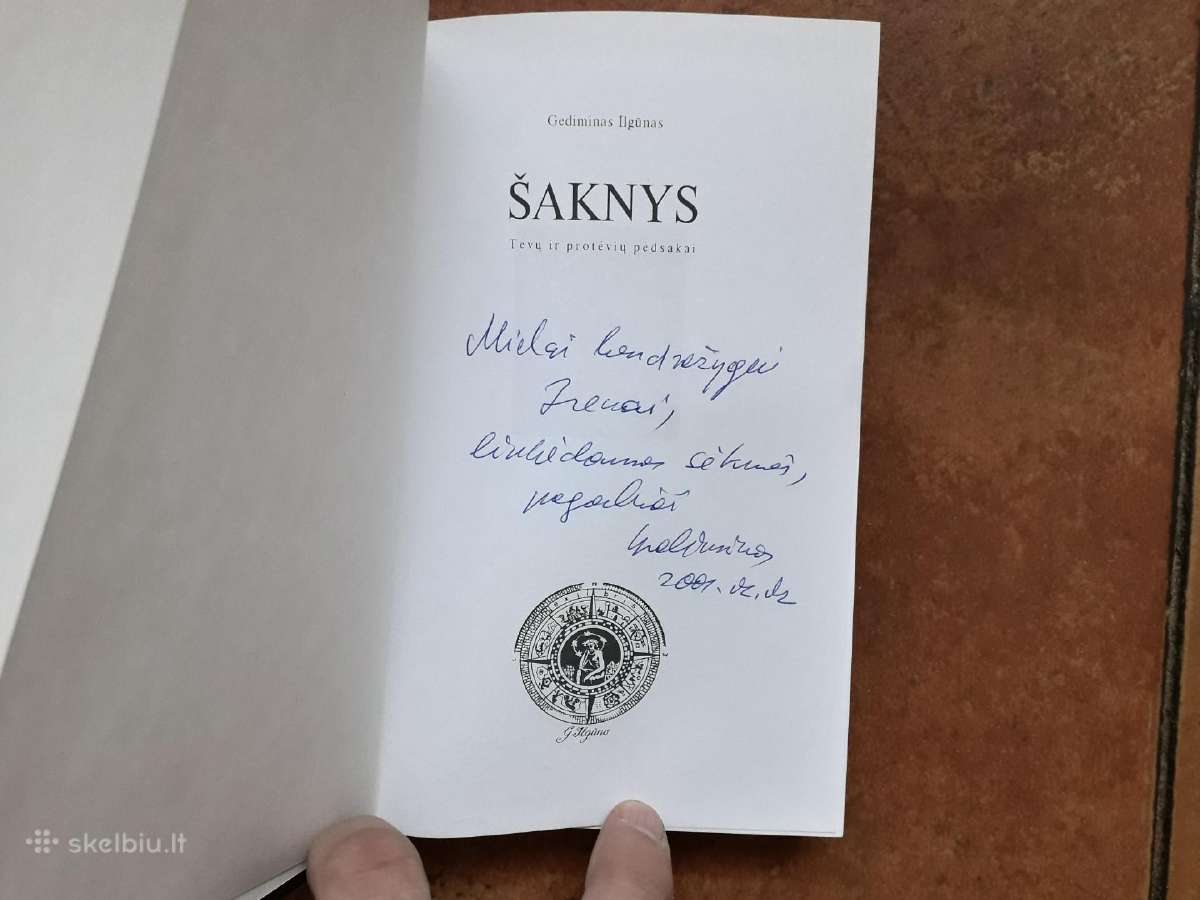 Gediminas Ilgūnas
ŠAKNYS
Tėvų ir protėvių pėdsakai
Mielai bendražygei
Irenai,
linkėdamas sėkmės,
pagarbiai
Gediminas
2001.
Ex libris
G. Ilgūno
skelbiu.lt